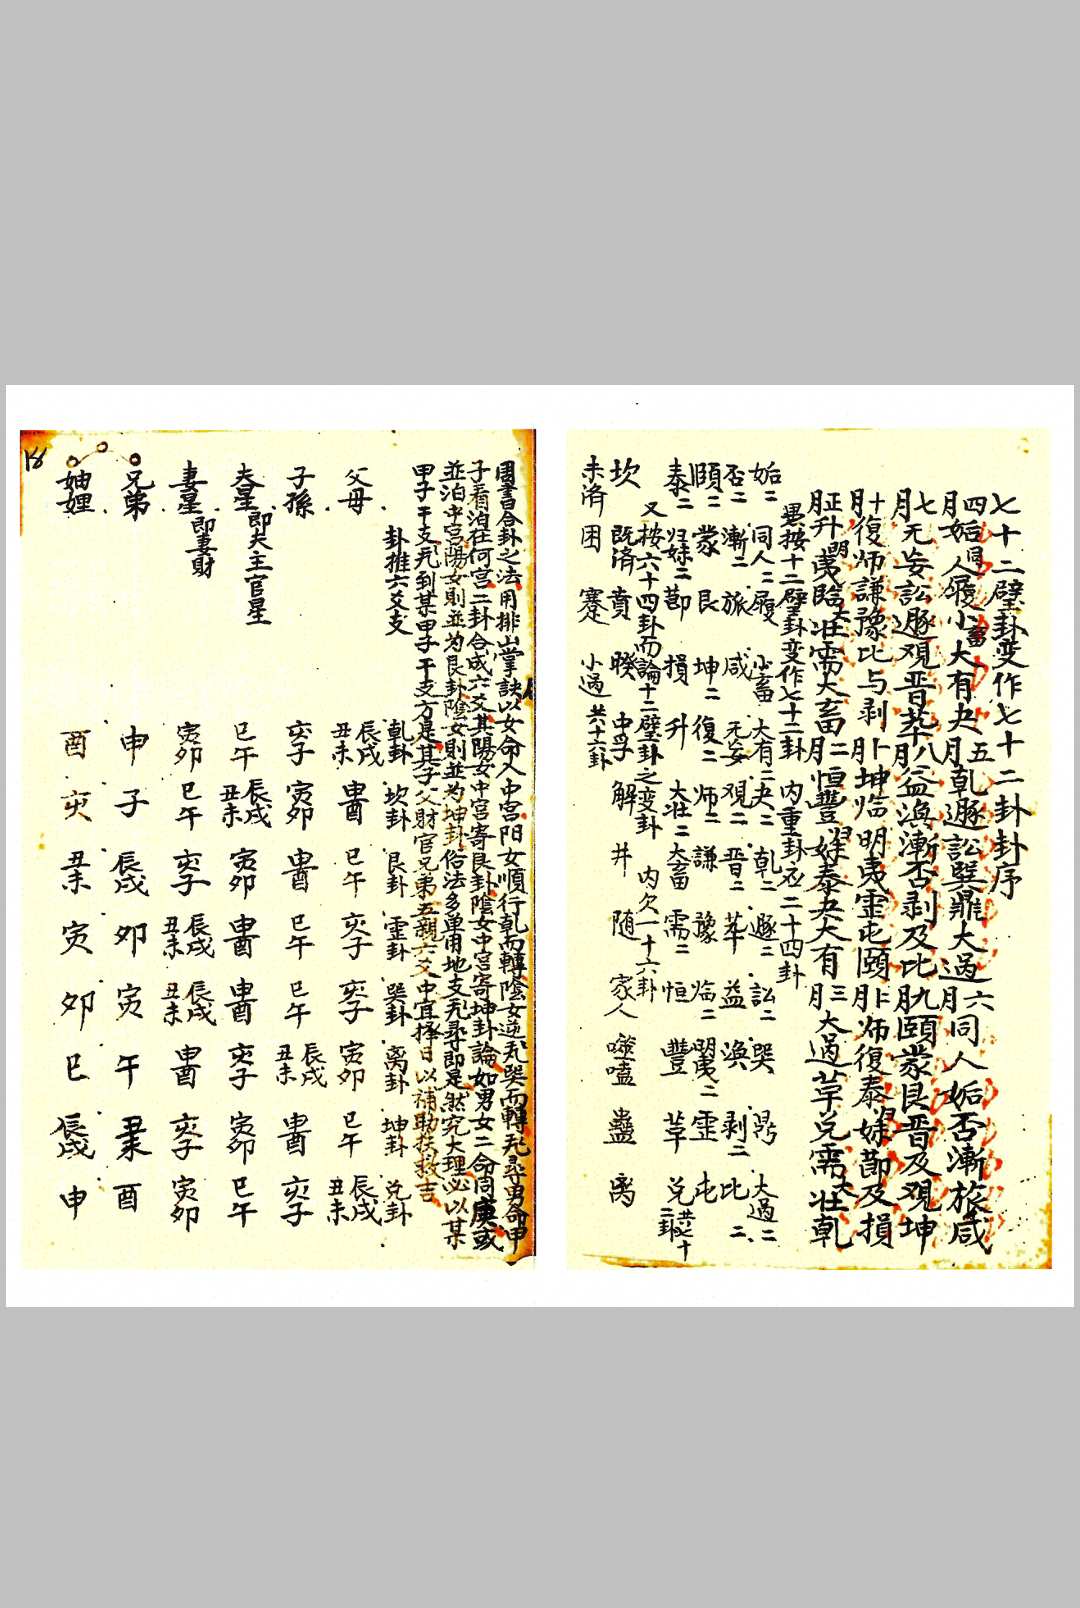 七十二璧卦变作七十二卦卦序
四月姤同人履小畜大有夬五月乾遯訟巽鼎大過六月同人姤否漸旅咸
七月无妄訟遯观晋萃八月益渙漸否剥及比九月頤蒙艮晋及观坤
十月復师謙豫比与剥十一月坤临明夷震屯頤十二月师復泰归妹節及損
正月升明夷臨大壮需大畜二月恒豐归妹泰夬大有三月大過革兑需大壮乾
愚按十二璧卦变作七十二卦 内重卦丞二十四卦
姤二 同人二 履 小畜 大有二 夬二 乾二 遯二 訟二 巽 鼎 大過二
否二 漸二 旅 咸 无妄 观二 晋二 萃 益 渙 剥二 比二
頤二 蒙 艮 坤二 復二 师二 謙 豫 临二 明夷二 震 屯
泰二 归妹二 節 損 升 大壮二 大畜 需二 恒 豐 革 兑 共七十二卦
又按六十四卦而論十二璧卦之变卦 内欠一十六卦
坎 既済 賁 睽 中孚 解 井 随 家人 噬嗑 蠱 离
未済 困 蹇 小過 共十六卦
周書合卦之法用排山掌訣以女命入中宮阳女順行乾而轉陰女逆兀巽而轉兀尋男命甲
子看泊在何宮二卦合成六爻其陽女中宮寄艮卦陰女中宮寄坤卦論如男女二命同庚或
並泊中宮陽女則並为艮卦陰女則並为坤卦俗法多单用地支兀尋即是然究大理必以某
甲子干支兀到某甲子干支方是其子父財官兄弟五親六爻中宜擇日以補助扶救吉
卦推六爻支 乾卦 坎卦 艮卦 震卦 巽卦 离卦 坤卦 兑卦
父母 辰戌丑未 申酉 巳午 亥子 亥子 寅卯 巳午 辰戌丑未
子孫 亥子 寅卯 申酉 巳午 巳午 辰戌丑未 申酉 亥子
夫星即夫主官星 巳午 辰戌丑未 寅卯 申酉 申酉 亥子 寅卯 巳午
妻星即妻財 寅卯 巳午 亥子 辰戌丑未 辰戌丑未 申酉 亥子 寅卯
兄弟 申 子 辰戌 卯 寅 午 丑未 酉
妯娌 酉 亥 丑未 寅 卯 巳 辰戌 申
18